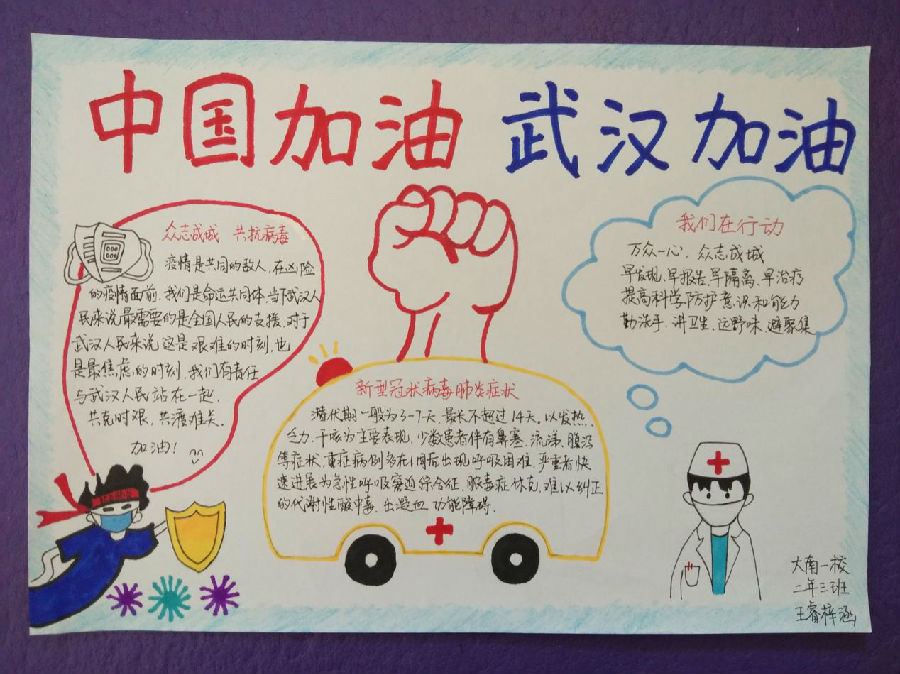 中国加油 武汉加油
众志成城 共抗病毒
疫情是共同的敌人.在凶险
的疫情面前.我们是命运共同体.当下武汉人
民来说最需要的是全国人民的支援.对于
武汉人民来说这是艰难的时刻.也
是最焦虑的时刻.我们有责任
与武汉人民站在一起.
共克时艰.共渡难关.
加油!
新型冠状病毒肺炎症状
潜伏期一般为3-7天.最长不超过14天.以发热.
乏力.干咳为主要表现.少数患者伴有鼻塞.流涕.腹泻
等症状.重症病例多在1周后出现呼吸困难.严重者快
速进展为急性呼吸窘迫综合征.脓毒症休克.难以纠正
的代谢性酸中毒.出凝血功能障碍.
我们在行动
万众一心.众志成城
早发现.早报告.早隔离.早治疗
提高科学防护意识和能力
勤洗手.讲卫生.远野味.避聚集
大南一校
二年三班
王睿梓涵